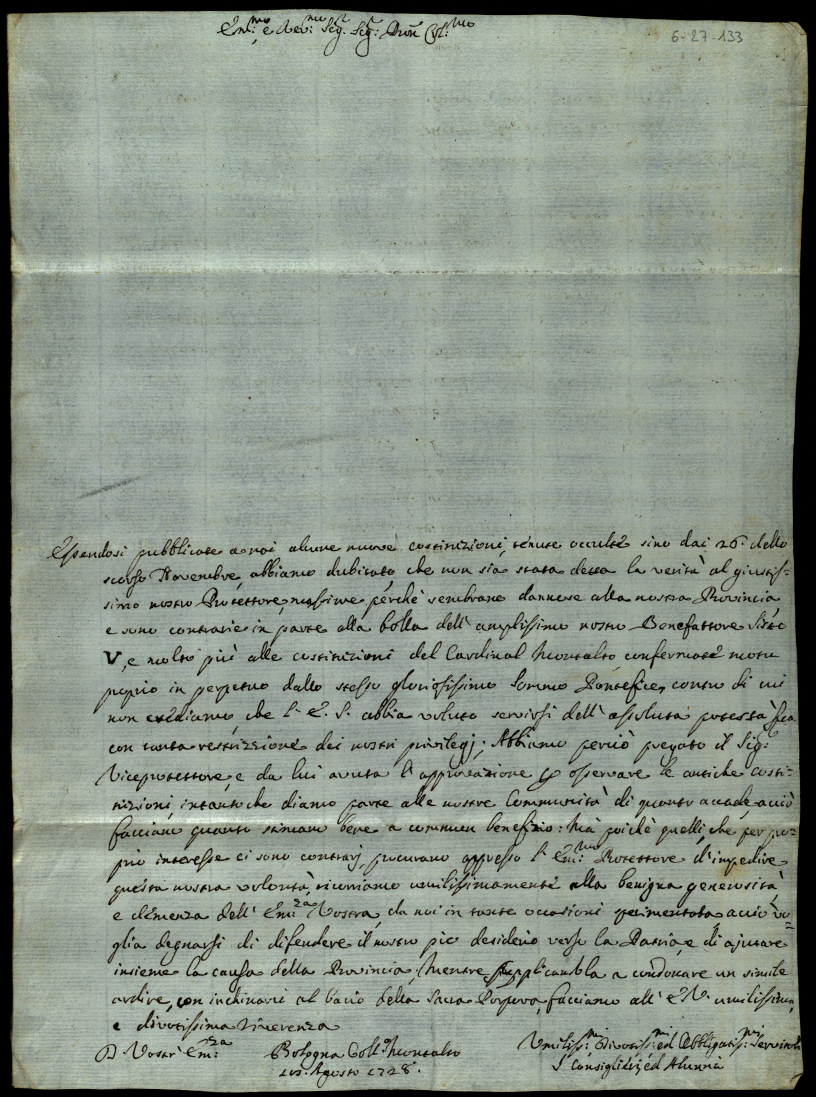 Em:mo e Rev:mo Sig. Sig: Pron Col:mo
6-27-133
Essendosi pubblicate a noi alcune nuove costituzioni, tenute occulte sino dai 26. dello
scorso Novembre, abbiamo dubitato, che non sia stata detta la verità al giustis-
simo nostro Protettore, massime, perchè sembrano dannose alla nostra Provincia,
e sono contrarie in parte alla bolla dell' amplissimo nostro Benefattore Sisto
V, e molto più alle costituzioni del Cardinal Montalto confermate motu
proprio in perpetuo dallo stesso gloriosissimo Sommo Pontefice, contro di cui
non crediamo, che l' E. S. abbia voluto servirsi dell' assoluta potestà sua
con tanta restrizione dei nostri privilegj; Abbiamo perciò pregato il Sig:
Viceprotettore, e da lui avuta l' approvazione p osservare le antiche costi-
tuzioni, intanto che diamo parte alle nostre Communità di quanto accade, acciò
facciano quanto stimano bene a commun benefizio: Mà poichè quelli, che per pro=
prio interesse ci sono contrarj, procurano appresso l' Em:mo Protettore d' impedire
questa nostra volontà, ricorriamo umilissimamente alla benigna generosità,
e clemenza dell' Em:za Vostra, da noi in tante occasioni sperimentata acciò vo=
glia degnarsi di difendere il nostro pio desiderio verso la Patria, e di ajutare
insieme la causa della Provincia; Mentre supplicandola a condonare un simile
ardire, con inchinarci al bacio della Sacra Porpora, facciamo all' E. V. umilissima,
e divotissima riverenza
D Vostr' Em:za Bologna Coll:o Montalto Umiliss:mi Divotis:mi ed Obbligatis:mi Servitori
Agosto 1728. I Consiglieri, ed Alunni